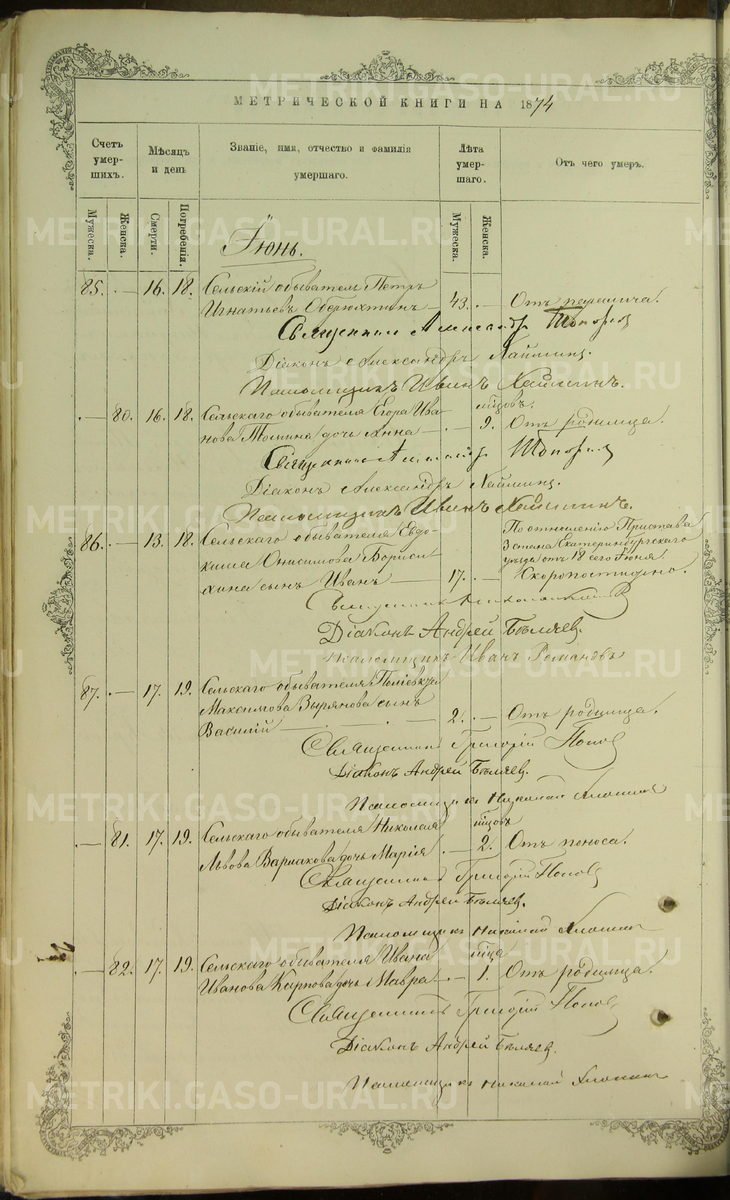 МЕТРИЧЕСКОЙ КНИГИ НА 1874
Счетъ умер-шихъ.
Мѣсяцъ и день
Званіе, имя, отчество и фамилія умершаго.
Лѣта умер-шаго.
Отъ чего умеръ.
Мужеска.
Женска.
Смерти.
Погребенія.
Мужеска.
Женска.
Іюнь.
85. — 16. 18. Сельскій обыватель Петръ
Игнатьевъ Оберюхтинъ — 43. — Отъ паралича.
Священникъ Александръ Топорков
Діаконъ Александръ
Псаломщикъ Иванъ
мѣсяцовъ.
— 80. 16. 18. Сельскаго обывателя Егора Ива-
нова Тосина дочь Анна — 9. Отъ родимца.
Священникъ Александръ
Діаконъ Александръ
Псаломщикъ Иванъ
86. — 13. 18. Сельскаго обывателя Евдо-
кима Онисимова Бориси-
хина сынъ Иванъ — 17. —
По отношенію Пристава
3 стана Екатеринбургскаго
уѣзда отъ 18 сего Іюня
Скоропостижно.
Священникъ
Діаконъ Андрей Бѣляевъ.
Псаломщикъ Иванъ Романовъ
87. — 17. 19. Сельскаго обывателя Поліевкта
Максимова Вырянова сынъ
Василій — 2. — Отъ родимца.
Священникъ Григорій Попов
Діаконъ Андрей Бѣляев.
Псаломщикъ Николай
мѣсяцовъ
— 81. 17. 19. Сельскаго обывателя Николая
Львова Варлакова дочь Марія. — 2. Отъ поноса.
Священникъ Григорій Попов
Діаконъ Андрей Бѣляев.
Псаломщикъ Николай
мѣсяца
— 82. 17. 19. Сельскаго обывателя Ивана
Иванова Карпова дочь Мавра — 1. Отъ родимца.
Священникъ Григорій Попов
Діаконъ Андрей Бѣляев.
Псаломщикъ Николай
METRIKI.GASO-URAL.RU